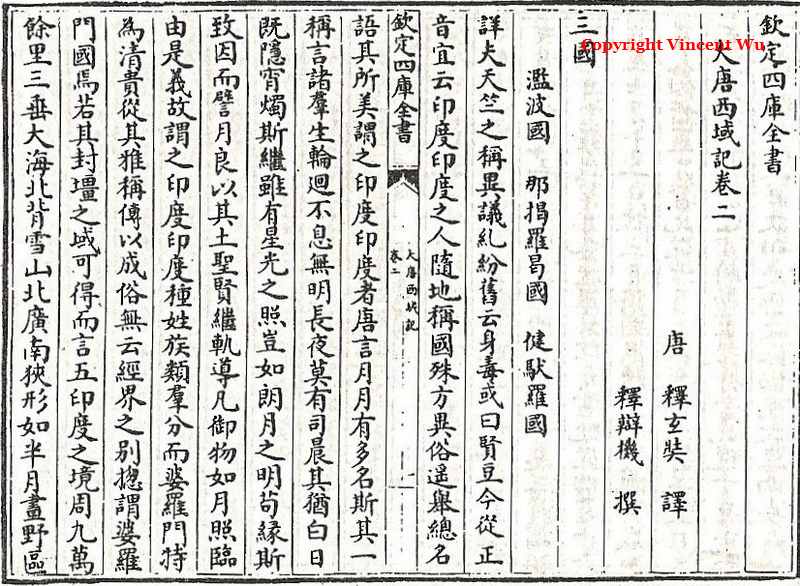 Copyright Vincent Wu
欽定四庫全書
大唐西域記卷二
唐 釋玄奘 譯
釋辯機 撰
三國
濫波國 那揭羅曷國 健馱羅國
詳夫天竺之稱異議糺紛舊云身毒或曰賢豆今從正
音宜云印度印度之人隨地稱國殊方異俗遥舉總名
欽定四庫全書
大唐西域記
卷二
一
語其所美謂之印度印度者唐言月月有多名斯其一
稱言諸羣生輪迴不息無明長夜莫有司晨其猶白日
既隱宵燭斯繼雖有星光之照豈如朗月之明茍緣斯
致因而譬月良以其土聖賢繼軌導凡御物如月照臨
由是義故謂之印度印度種姓族類羣分而婆羅門特
為清貴從其雅稱傳以成俗無云經界之别揔謂婆羅
門國焉若其封壃之域可得而言五印度之境周九萬
餘里三垂大海北背雪山北廣南狹形如半月畫野區